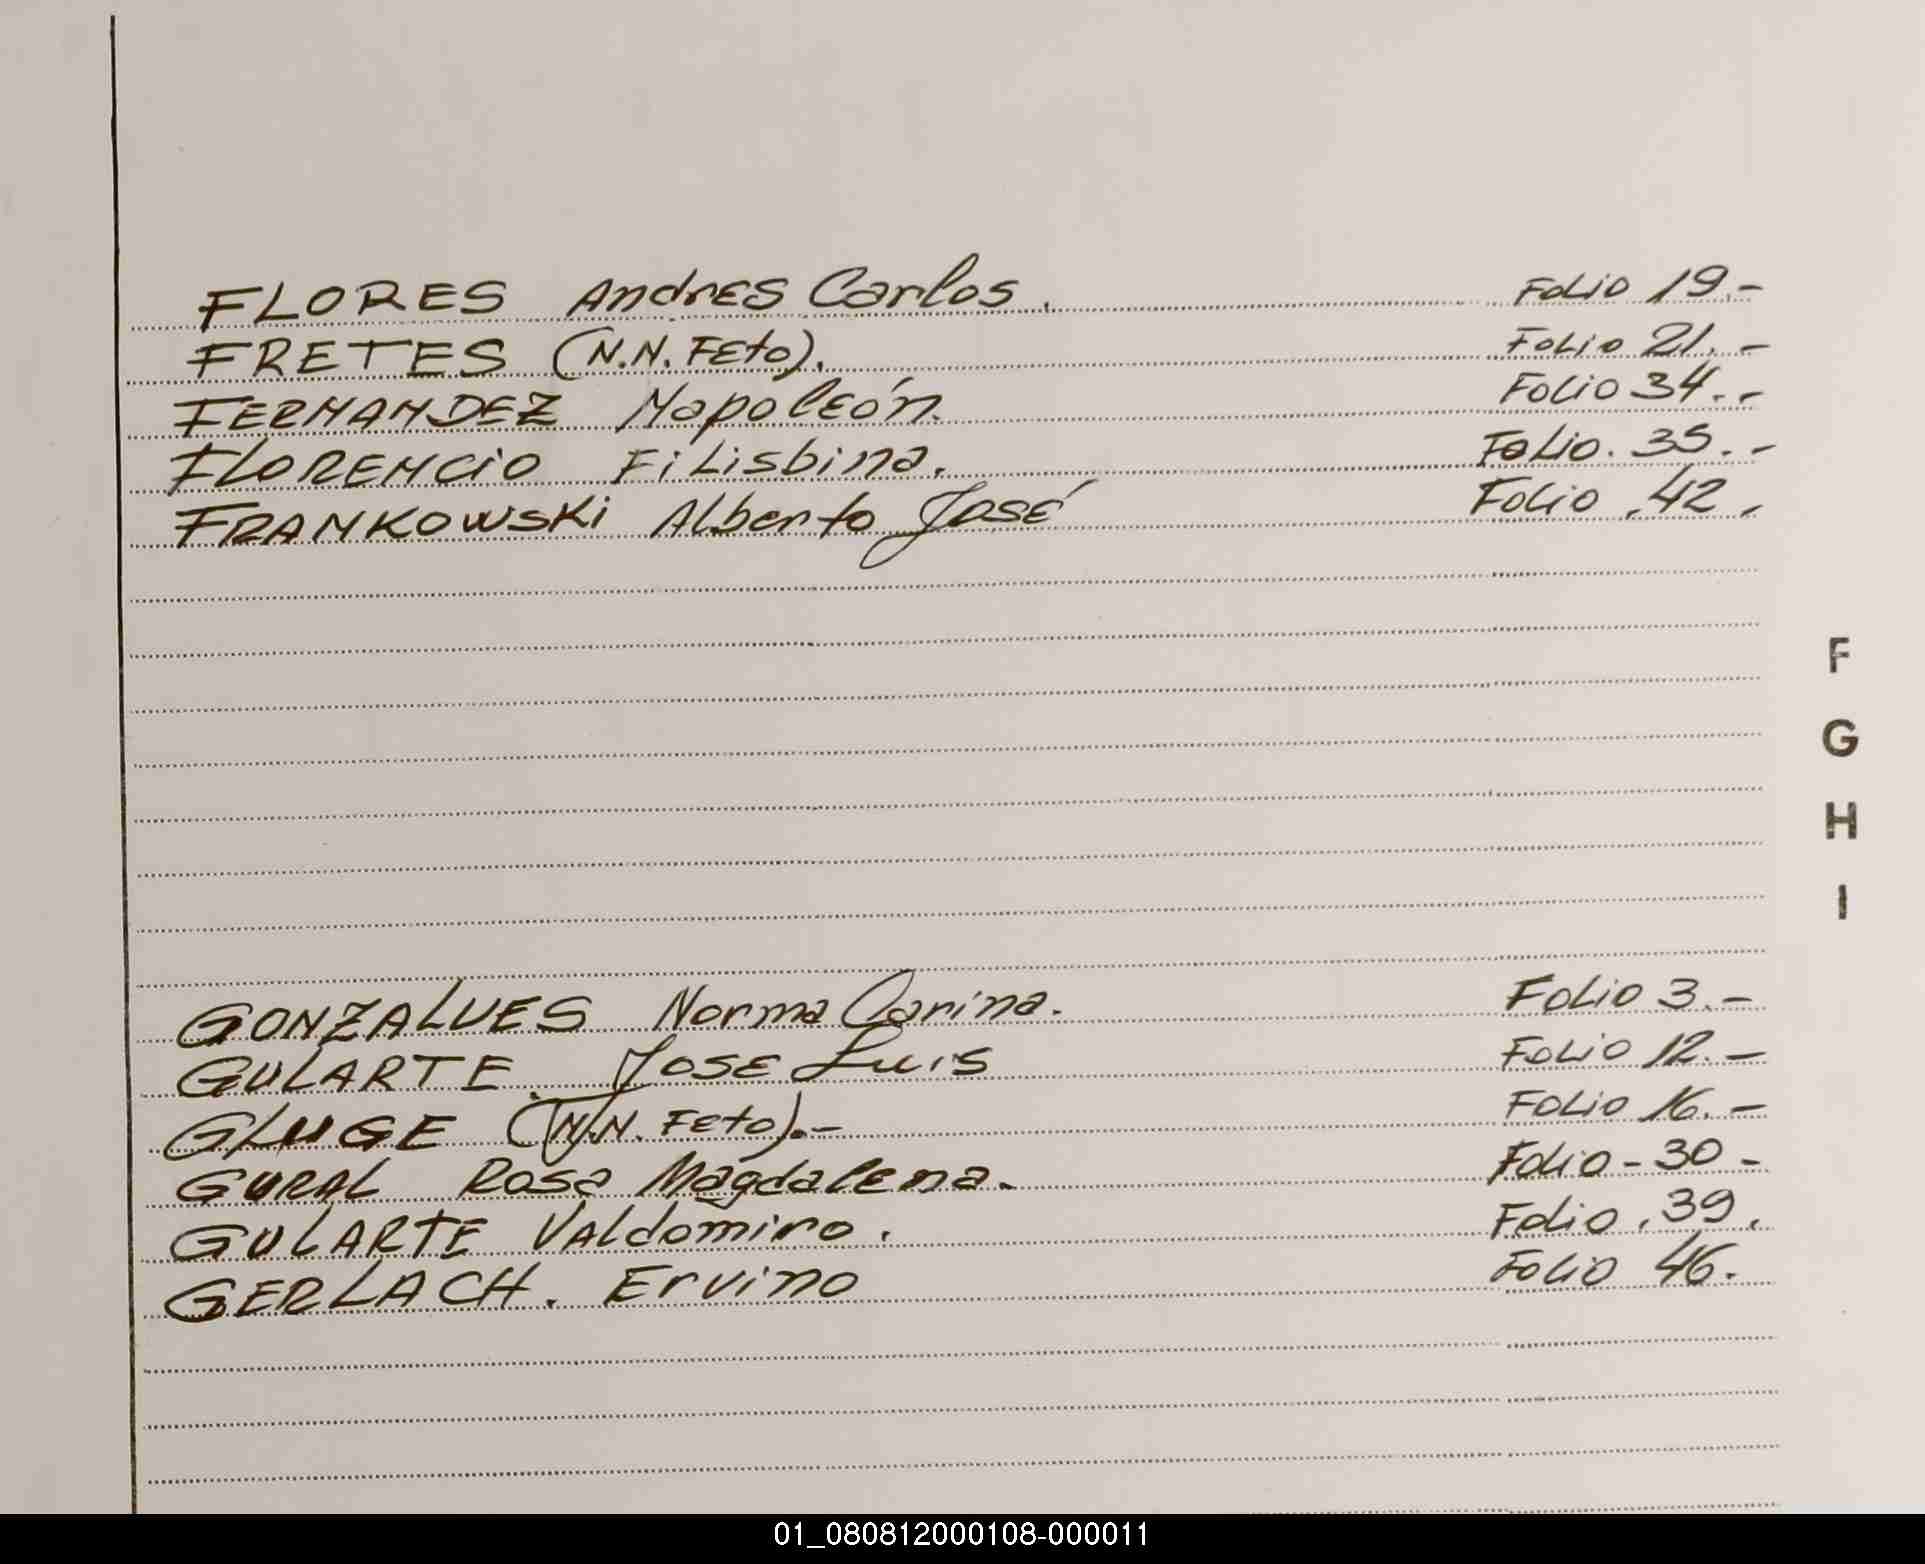 FLORES Andres Carlos. Folio 19.-
FRETES (N.N. Feto). Folio 21.-
FERNANDEZ Napoleón. Folio 34.-
FLORENCIO Filisbina. Folio. 35.-
FRANKOWSKI Alberto José Folio .42.
F
G
H
I
GONZALVES Norma Carina. Folio 3.-
GULARTE. Jose Luis Folio 12.-
GLUGE (N.N. Feto).- Folio 16.-
GURAL Rosa Magdalena. Folio - 30 -
GULARTE Valdomiro. Folio .39.
GERLACH. Ervino Folio 46.
01_080812000108-000011